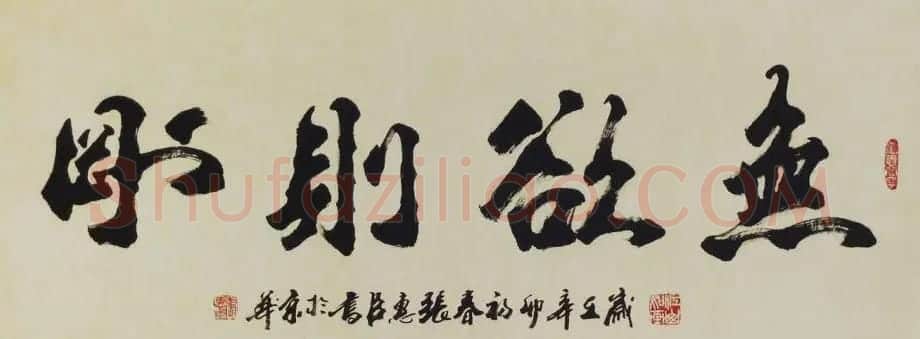 無欲則剛
歲在辛卯初春張惠臣書於京華
Shufaziliao.COM